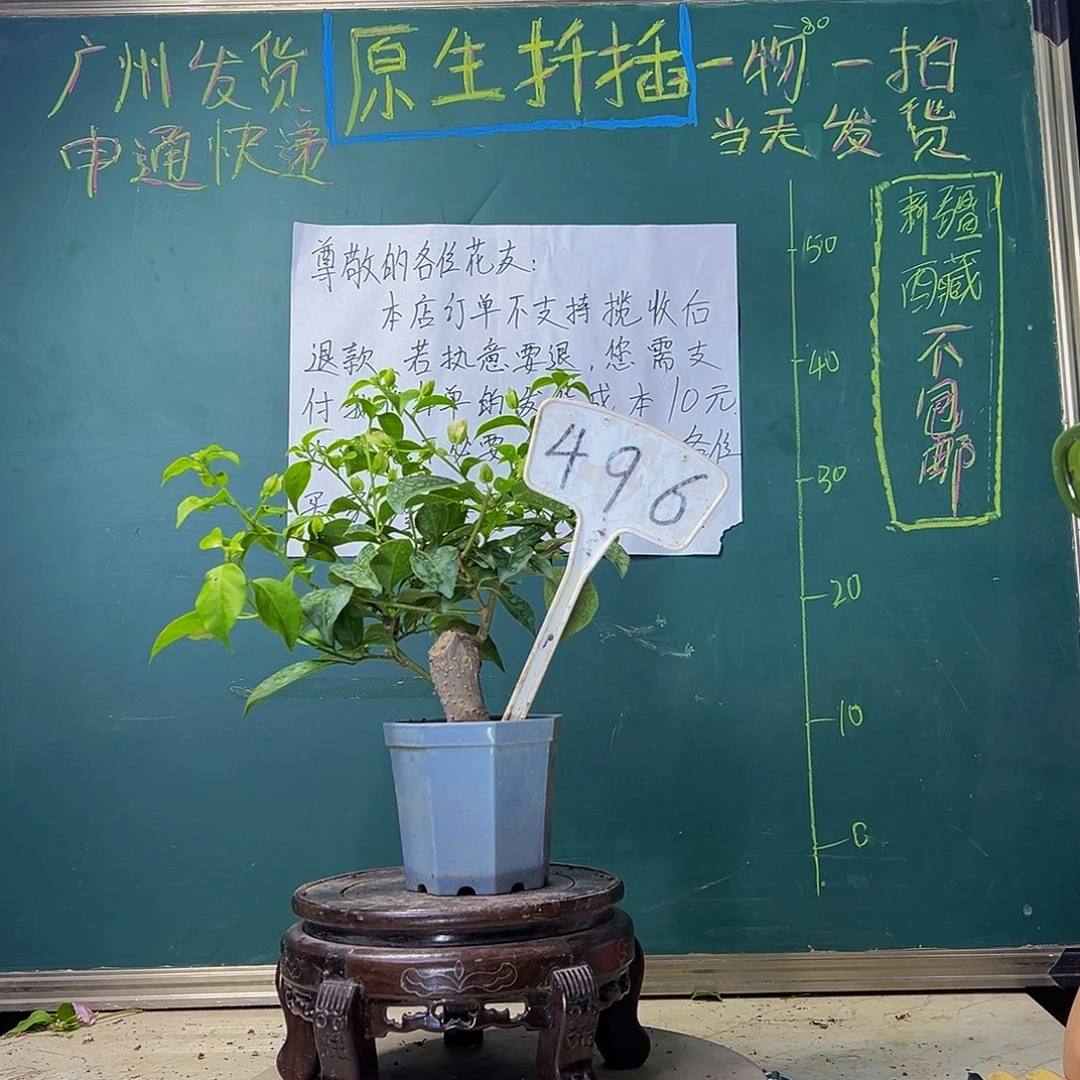 广州发货
原生扦插
一物一拍
80
申通快递
当天发货
尊敬的各位花友:
本店订单不支持揽收后
退款 若执意要退,您需支
付 单的发货成本10元.
必要 各位
买
496
新疆
西藏
不包邮
50
40
30
20
10
0